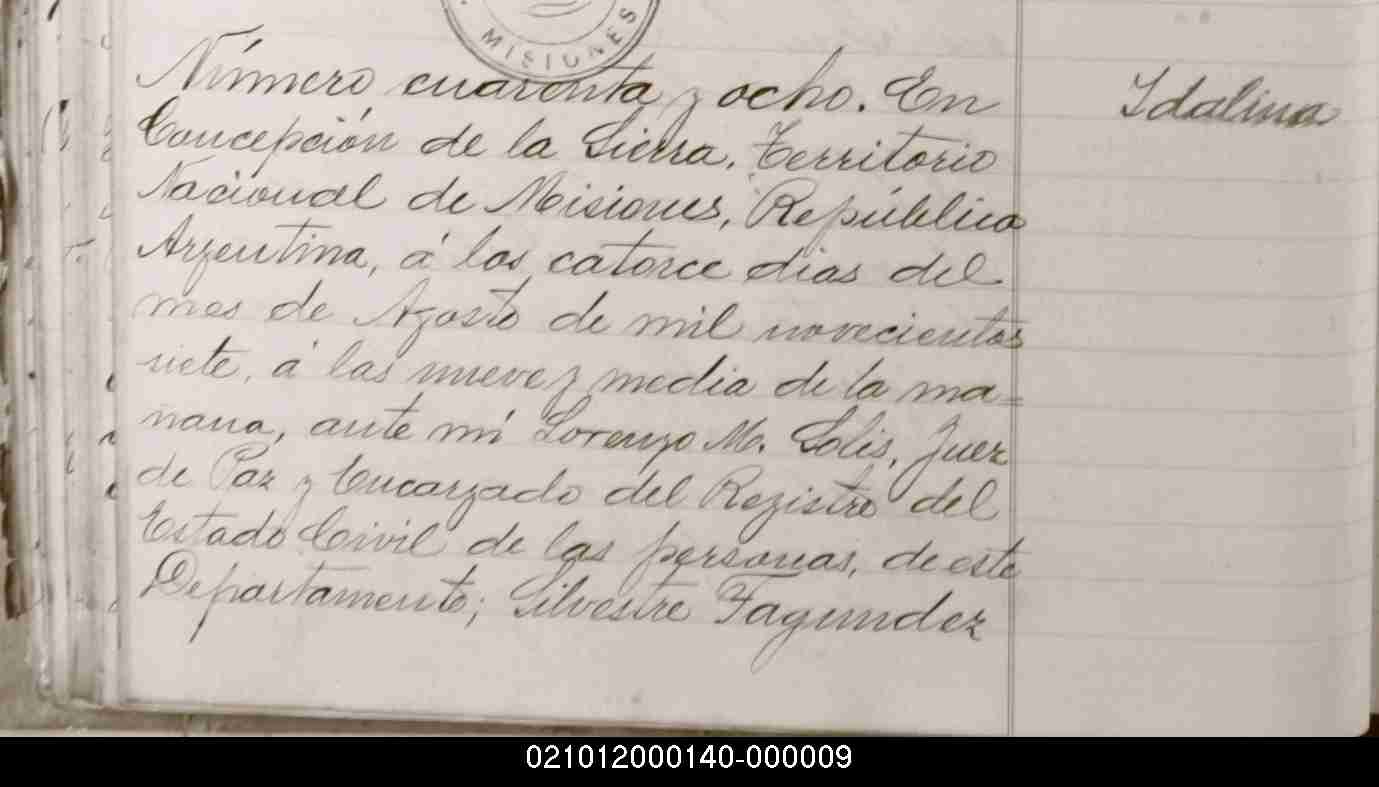 MISIONES
Número cuarenta y ocho. En
Concepción de la Sierra, Territorio
Nacional de Misiones, República
Argentina, á los catorce dias del
mes de Agosto de mil novecientos
siete, á las nueve y media de la ma=
ñana, ante mí Lorenzo M. Solis, Juez
de Paz y Encargado del Registro del
Estado Civil de las personas, de este
Departamento; Silvestre Fagundez
Idalina
021012000140-000009